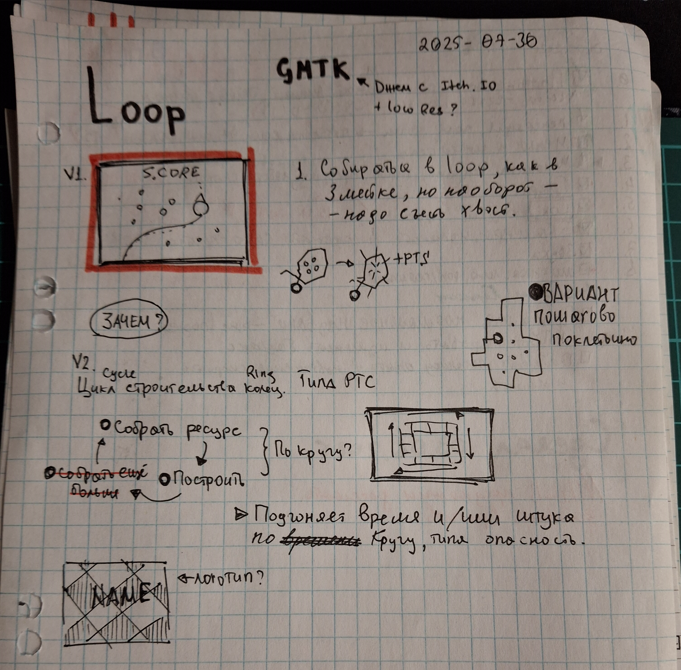 2025-07-30
GMTK
Джем с Itch.IO
+ low Res?
Loop
V1.
SCORE
1. Собираться в loop, как в
Змейке, но наоборот –
– надо съесть хвост.
+PTS
ЗАЧЕМ?
ВАРИАНТ
пошагово
поклеточно
V2.
cycle
Ring
Цикл строительства колец. Типа РТС
Собрать ресурс
Построить
собрать ещё
больше
По кругу?
Подгоняет время и/или штука
по времени кругу, типа опасность.
NAME
логотип?